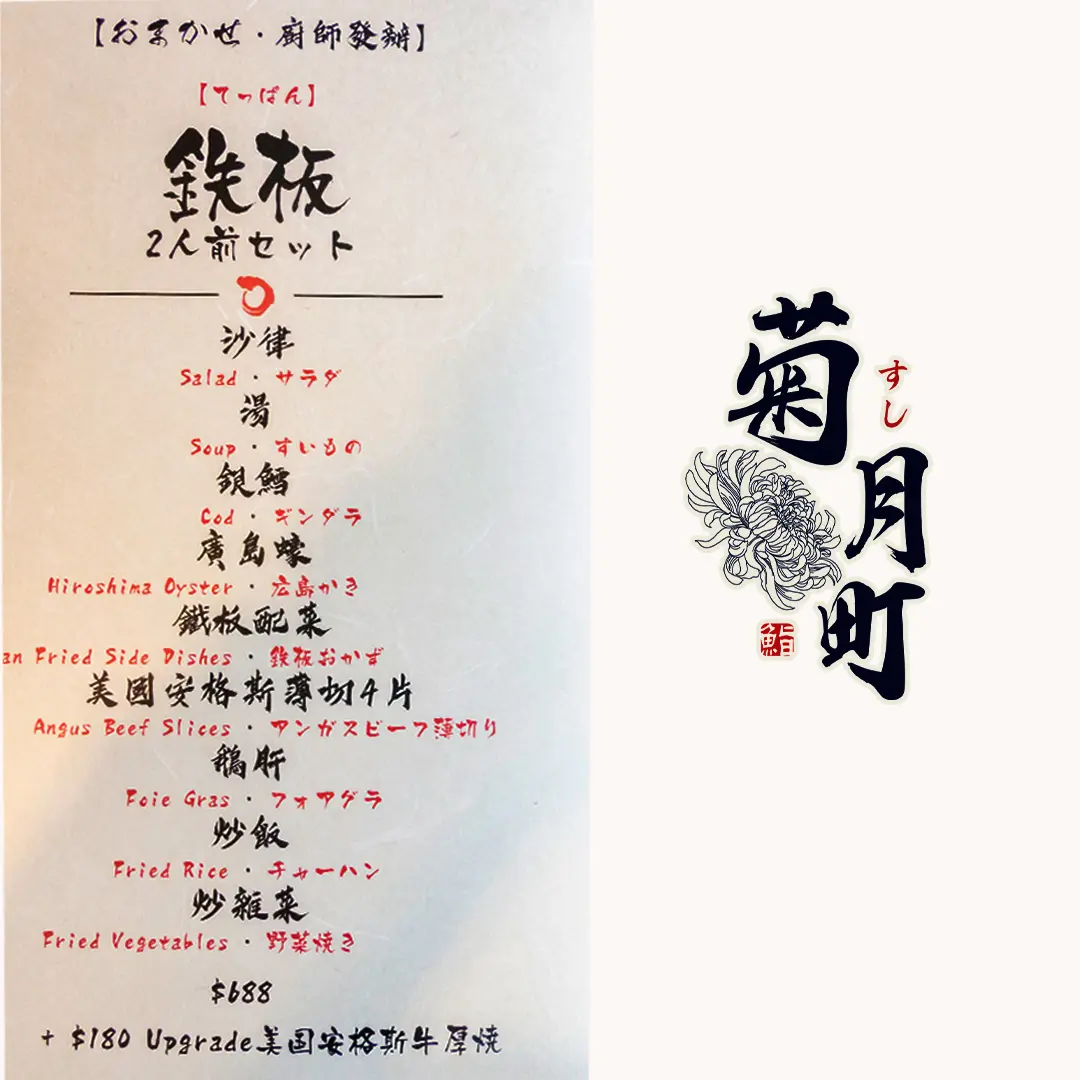 【おまかせ・廚師發辦】
【てっぱん】
鉄板
2人前セット
沙律
Salad・サラダ
湯
Soup・すいもの
銀鱈
Cod・ギンダラ
廣島蠔
Hiroshima Oyster・広島かき
鐵板配菜
an Fried Side Dishes・鉄板おかず
美國安格斯薄切4片
Angus Beef Slices・アンガスビーフ薄切り
鵝肝
Foie Gras・フォアグラ
炒飯
Fried Rice・チャーハン
炒雜菜
Fried Vegetables・野菜焼き
$688
+ $180 Upgrade美国安格斯牛厚焼
菊月町
すし
鮨